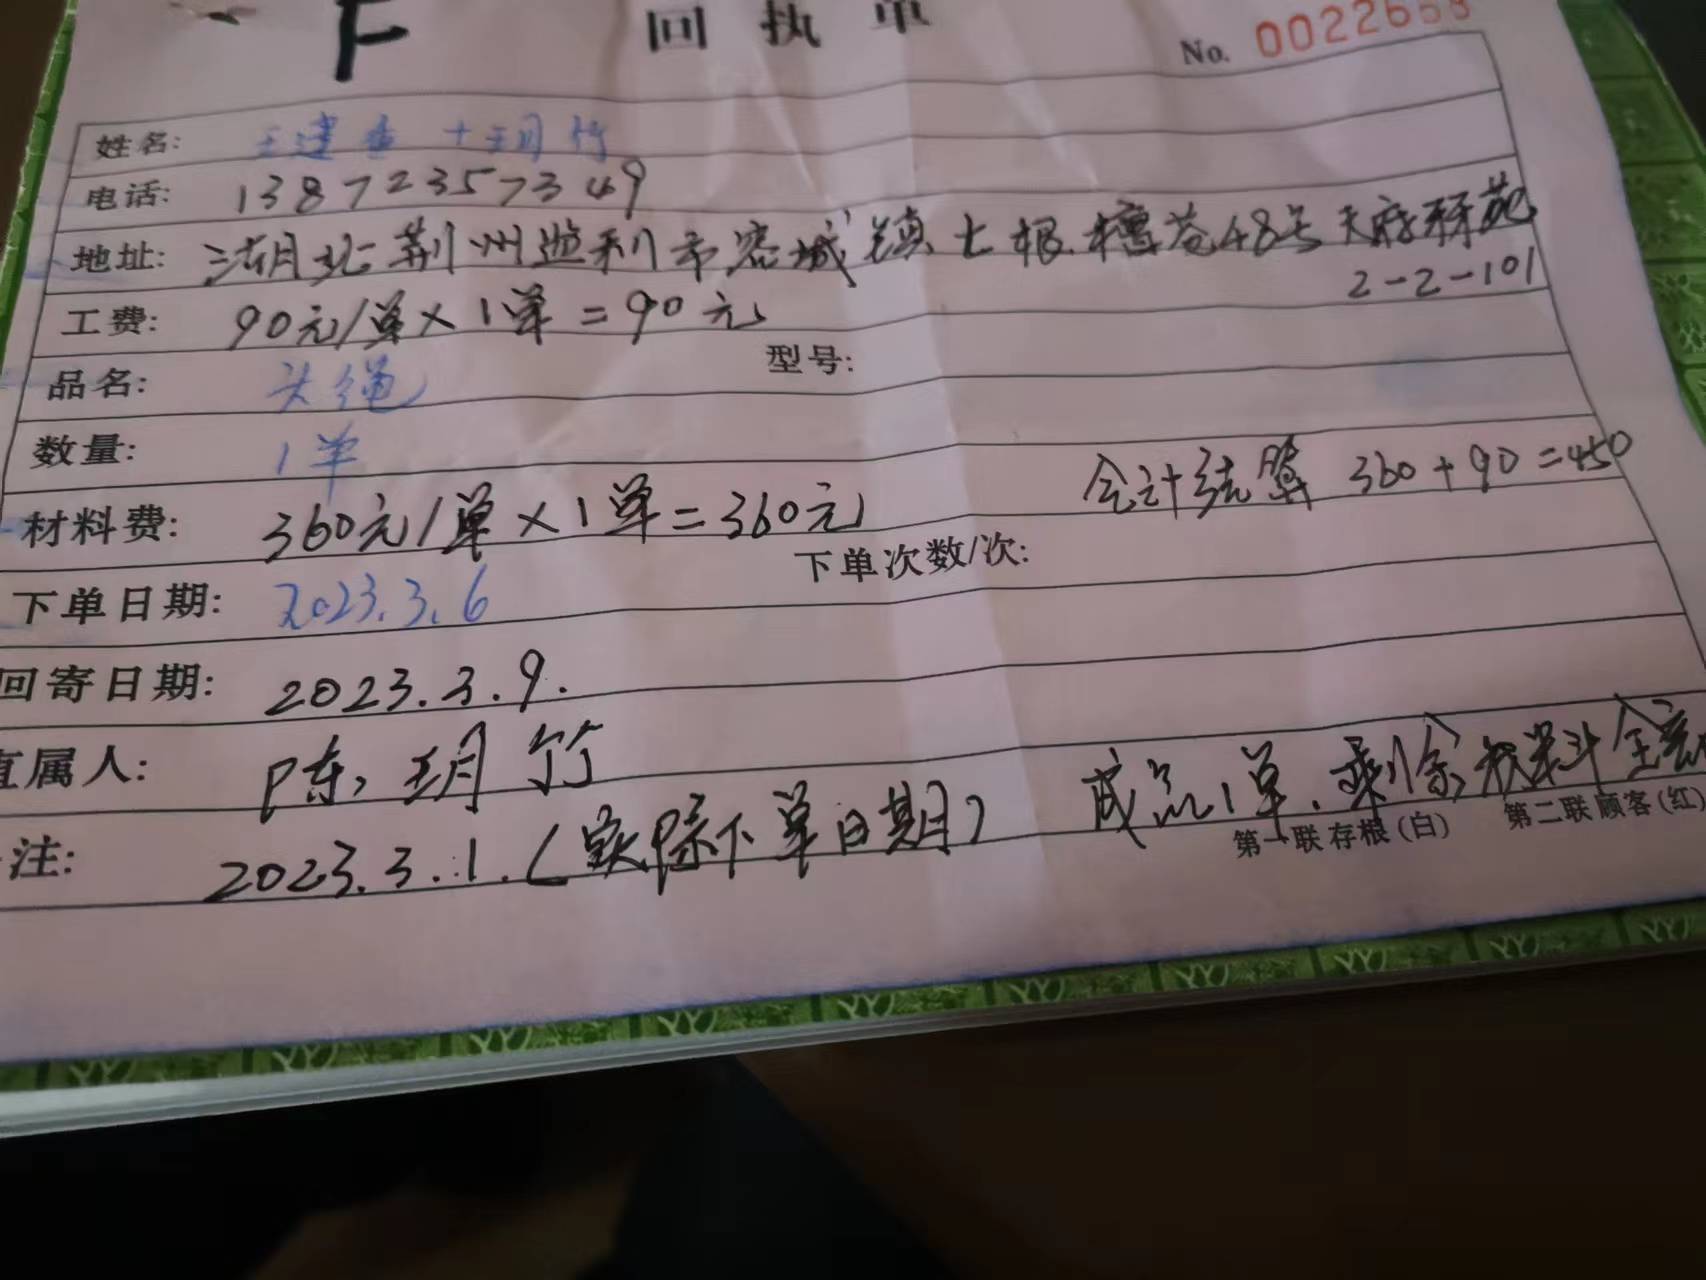 F
回执单
No. 0022658
姓名: 王建 + 玥竹
电话: 13872357349
地址: 湖北荆州监利市容城镇七根檀巷48号天府
2-2-101
工费: 90元/单×1单=90元
品名: 头绳 型号:
数量: 1单
材料费: 360元/单×1单=360元 会计结算 360+90=450
下单日期: 2023.3.6 下单次数/次:
回寄日期: 2023.3.9.
直属人: 陈玥竹
注: 2023.3.1.(实际下单日期) 成品1单.剩余材料全
第一联存根(白) 第二联顾客(红)